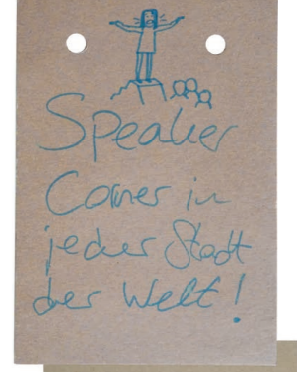 Speaker
Corner in
jeder Stadt
der Welt!